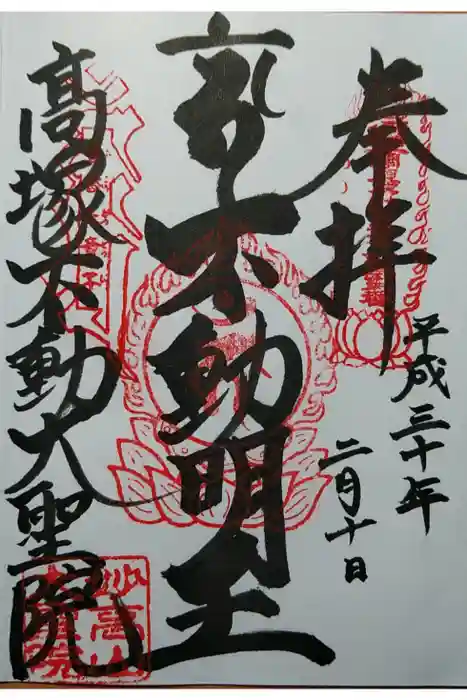 奉拝
平成三十年
二月十日
不動明王
高塚不動大聖院